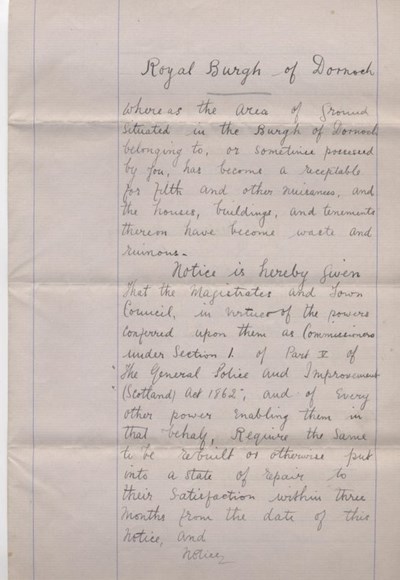 Royal Burgh of Dornoch
Whereas the area of ground
situated in the Burgh of Dornoch
belonging to, or sometime possessed
by you, has become a receptable
for filth and other nuisances, and
the houses, buildings, and tenements
thereon have become waste and
ruinous.
Notice is hereby given
That the Magistrates and Town
Council, in virtue of the powers
conferred upon them as Commissioners
under Section 1. of Part V of
The General Police and Improvement
(Scotland) Act 1862, and of Every
other power Enabling them in
that behalf, Require the Same
to be rebuilt or otherwise put
into a state of repair to
their Satisfaction within three
Months from the date of this
Notice, and
Notice